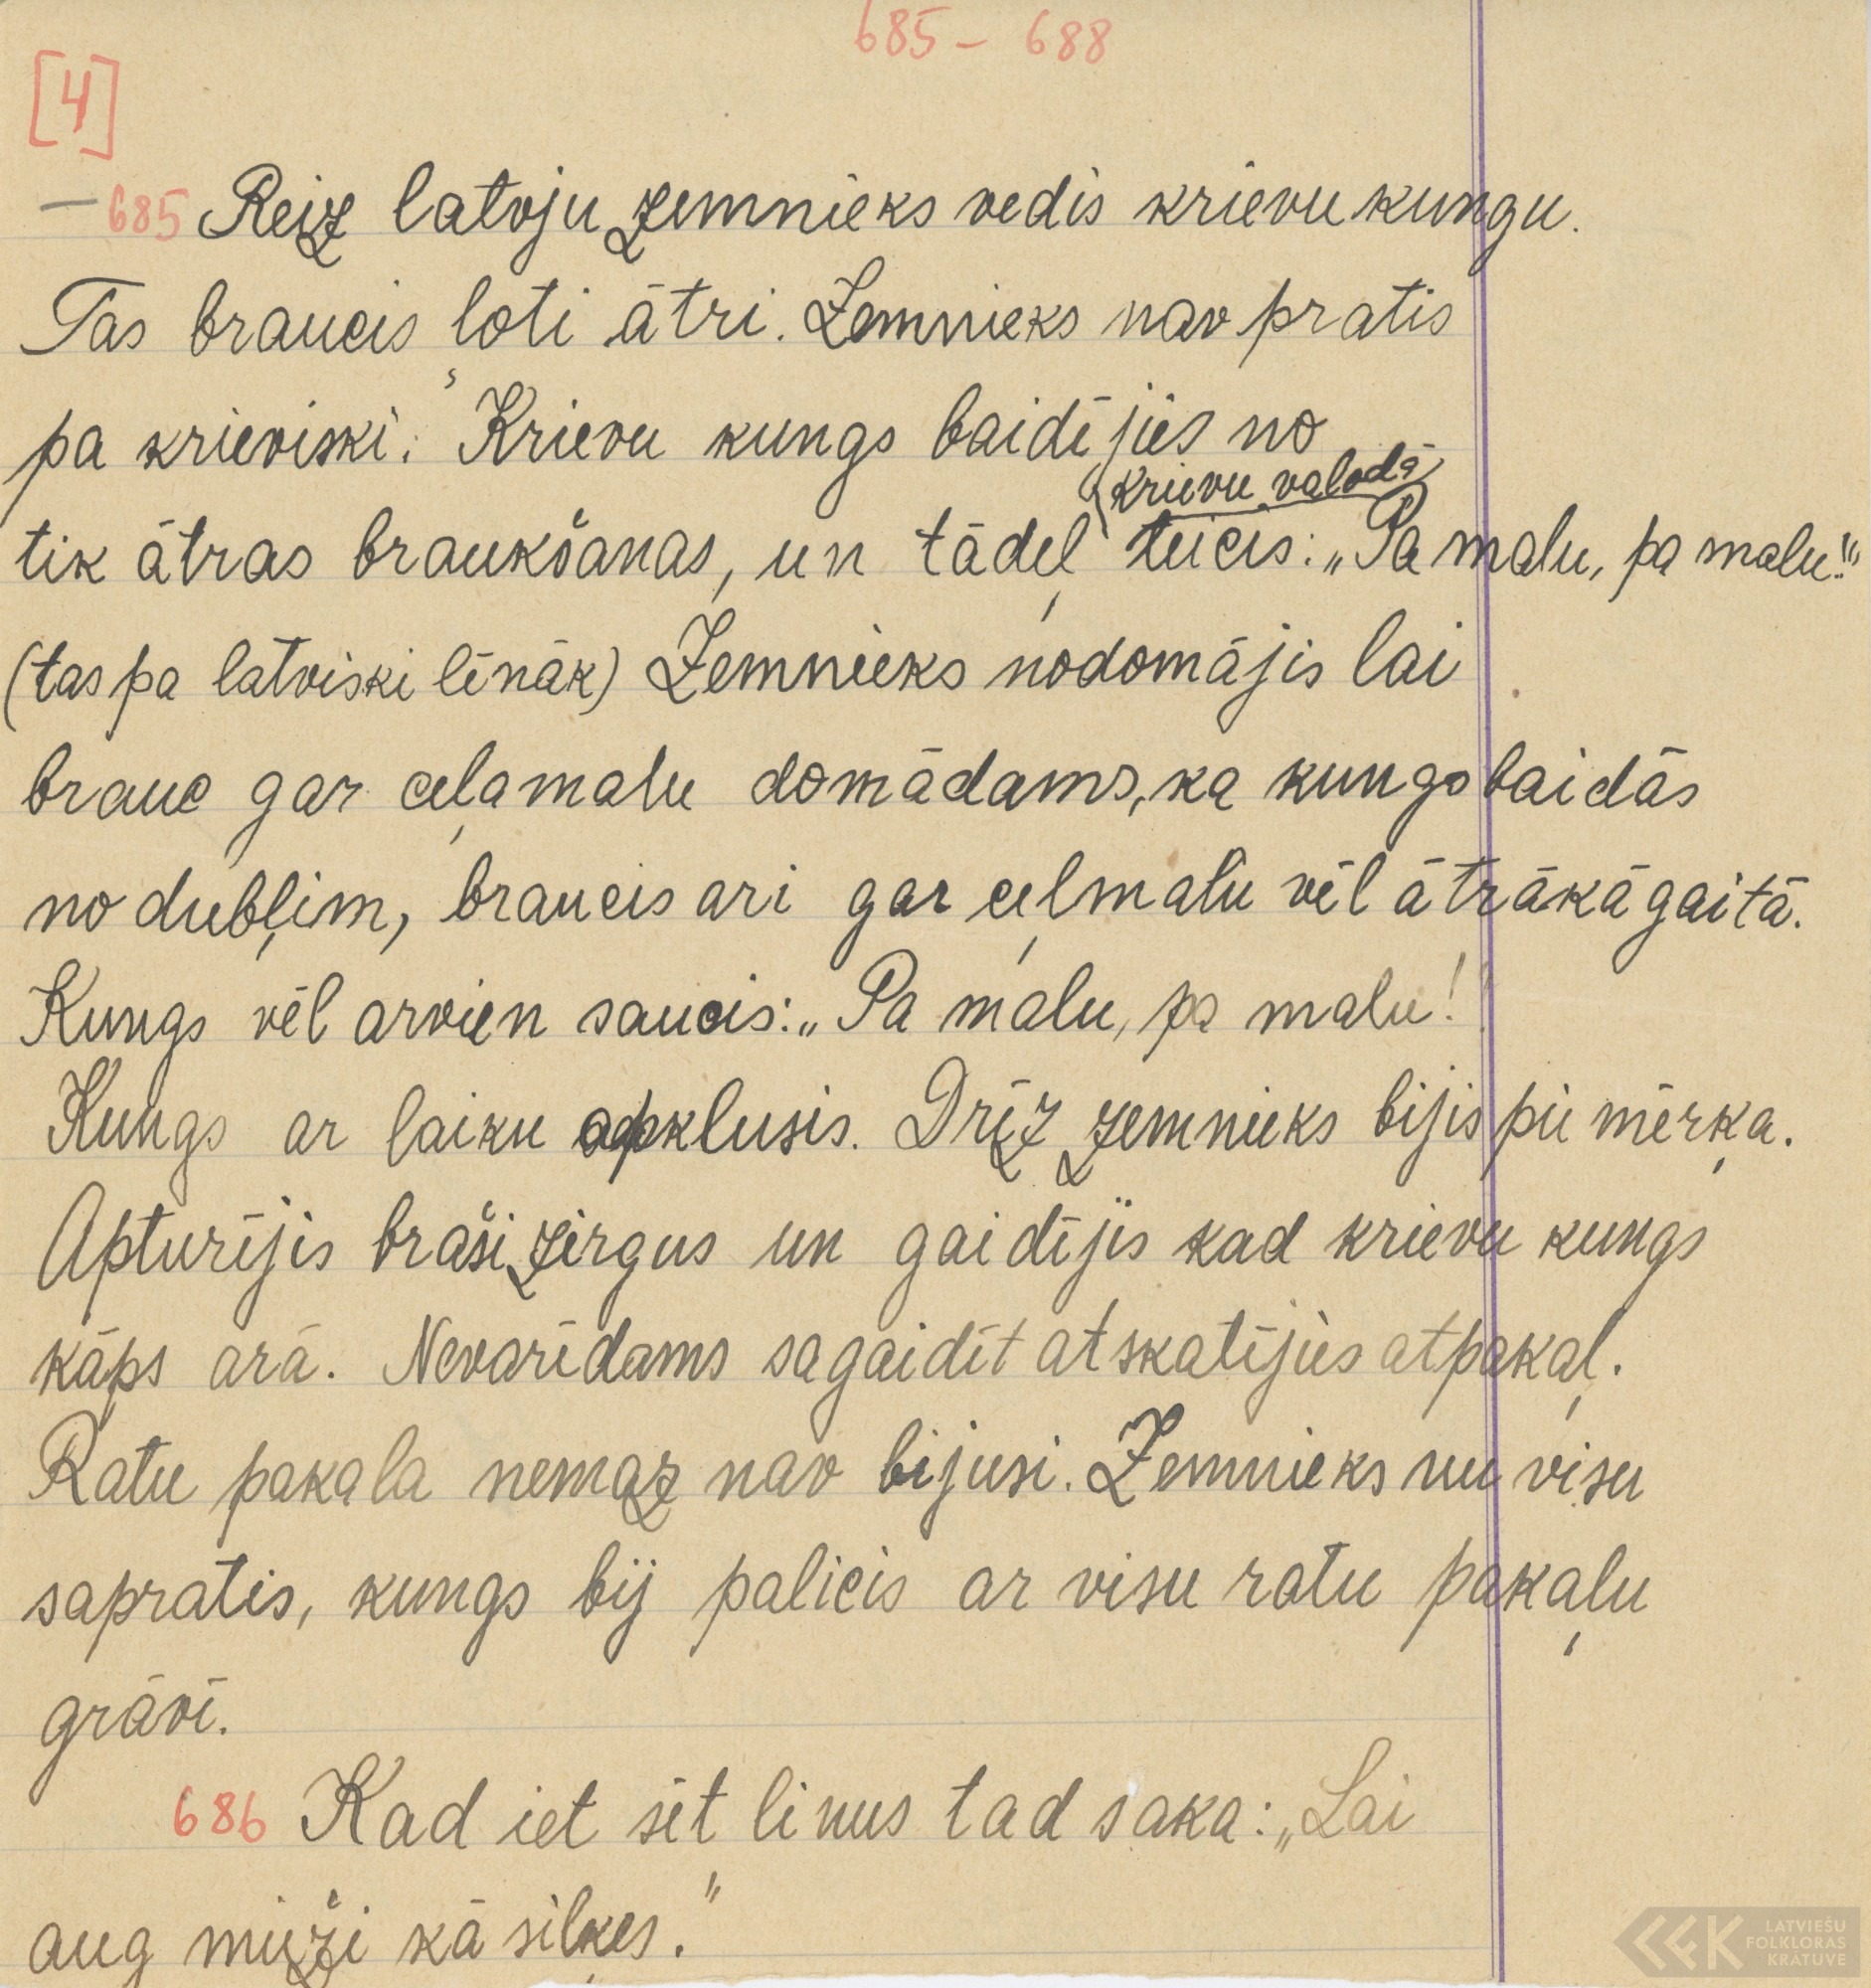 685 – 688
[4]
— 685 Reiz latvju zemnieks vedis krievu kungu.
Tas braucis ļoti ātri. Zemnieks nav pratis
pa krieviski. Krievu kungs baidījies no
(krievu valodā)
tik ātras braukšanas, un tādeļ teicis: „Pa malu, pa malu!"
(tas pa latviski lēnāk) Zemnieks nodomājis lai
brauc gar ceļa malu domādams, ka kungs baidās
no dubļim, braucis ari gar ceļmalu vēl ātrākā gaitā.
Kungs vēl arvien saucis: „Pa malu, pa malu!"
Kungs ar laiku apklusis. Drīz zemnieks bijis pie mērķa.
Apturējis braši zirgus un gaidījis kad krievu kungs
kāps ārā. Nevarēdams sagaidīt atskatījies atpakaļ.
Ratu pakala nemaz nav bijusi. Zemnieks nu visu
sapratis, kungs bij palicis ar visu ratu pakaļu
grāvī.
686 Kad iet sēt linus tad saka: „Lai
aug mieži kā siļķes."
LATVIEŠU
FOLKLORAS
KRĀTUVE